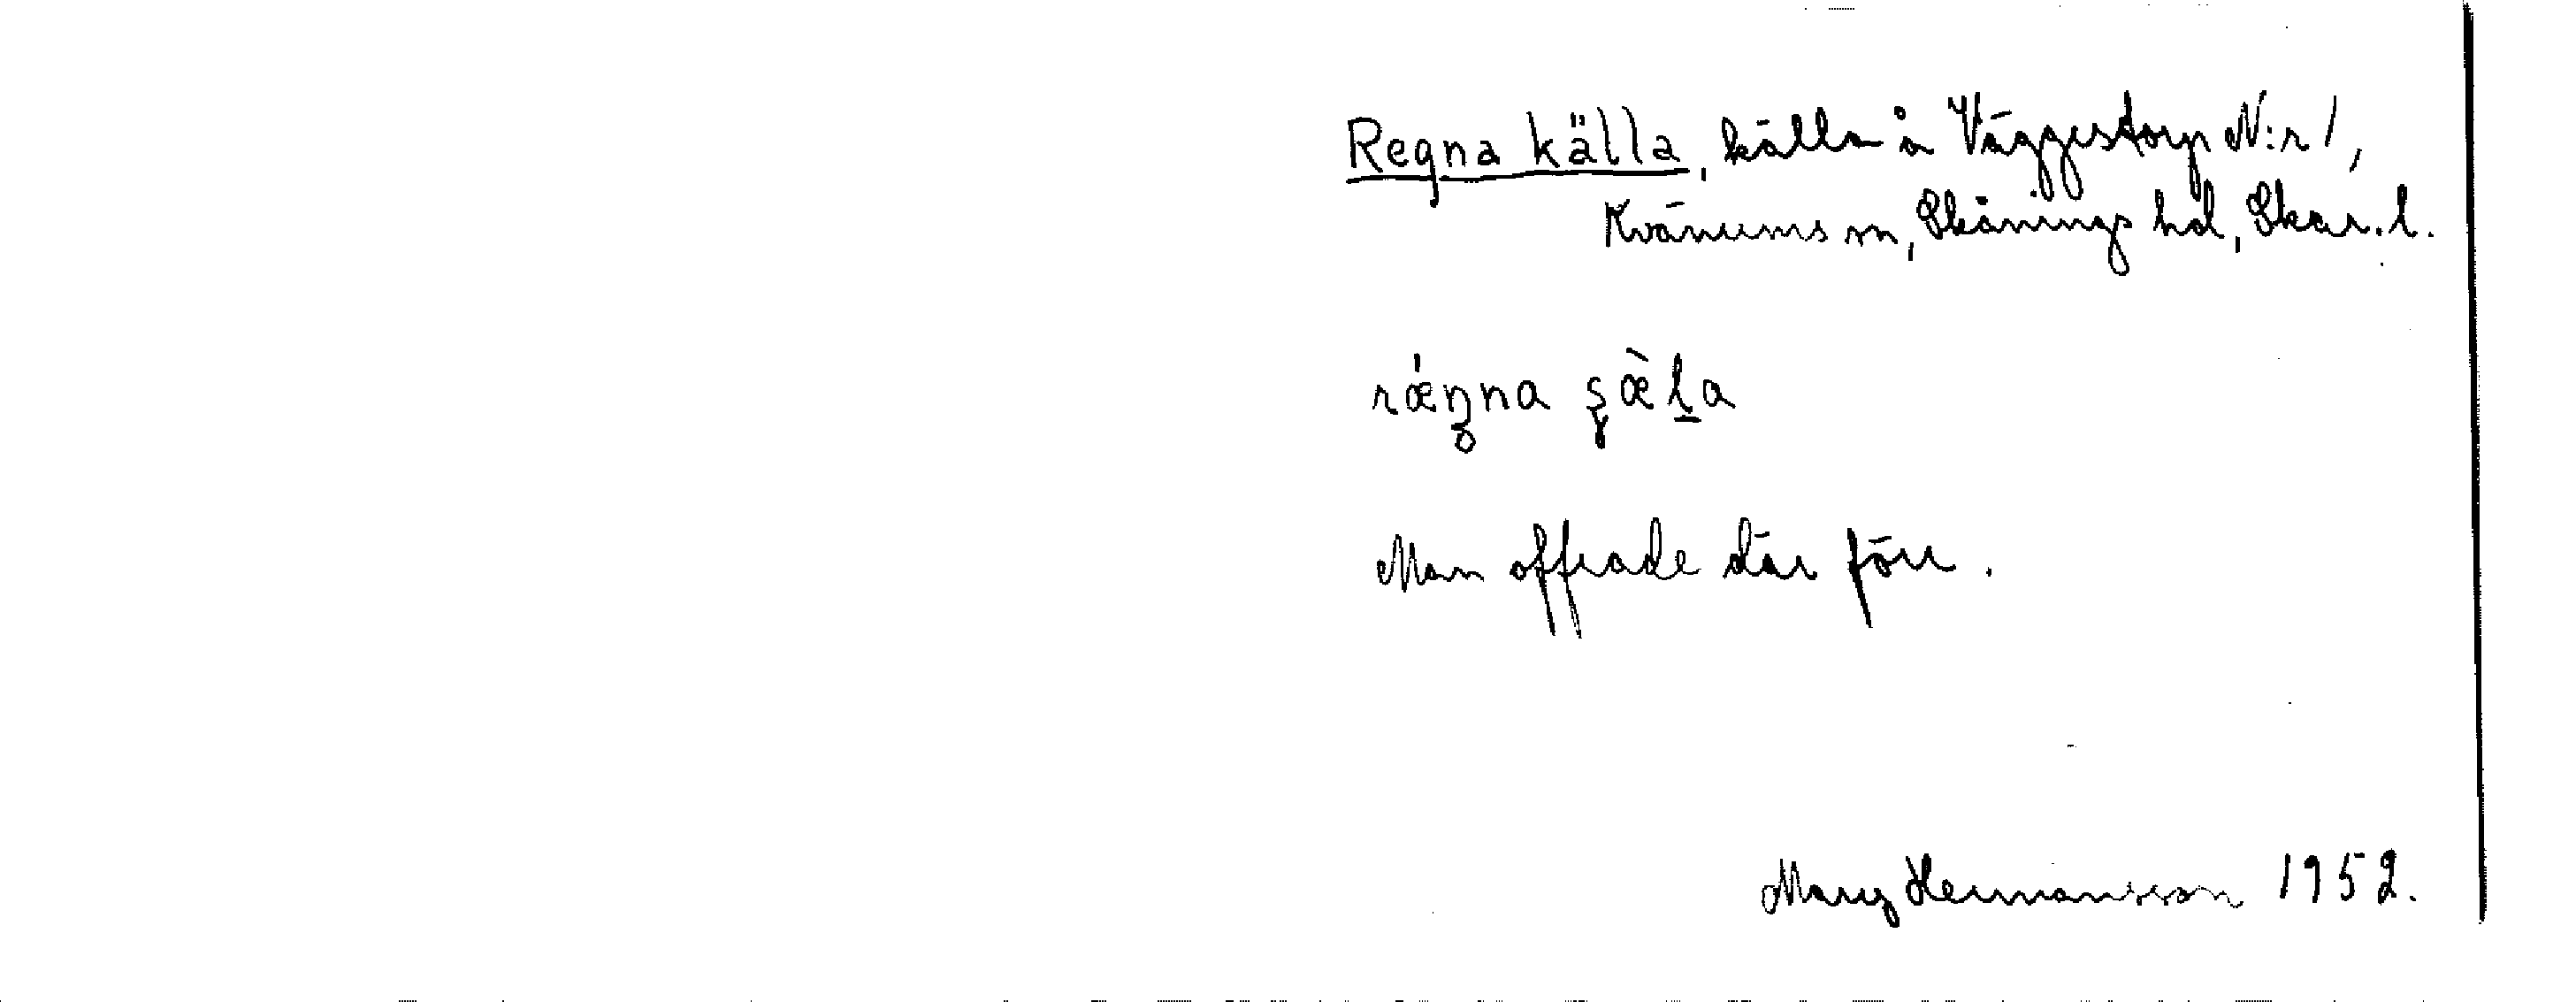 Regna källa, källa å Väggestorp N:r 1,
Kvänums sn, Skånings hd, Skar. l.
rǽŋna ʂæ̀la
Man offrade där förr.
Mary Hermansson 1952.